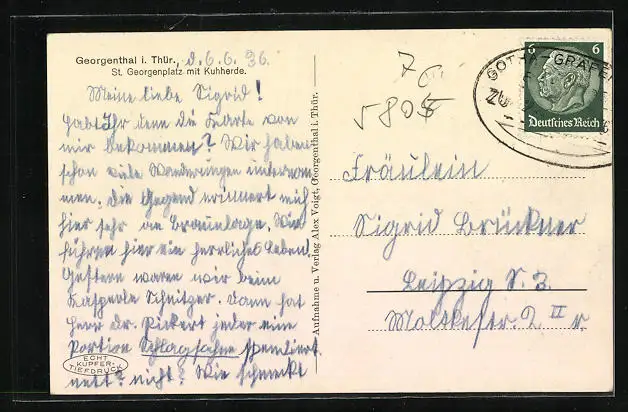 Georgenthal i. Thür., d. 6.6.36.
St. Georgenplatz mit Kuhherde.
Meine liebe Sigrid!
Habt Ihr denn die Karte von
mir bekommen? Wir haben
schon viele Wanderungen unternom-
men. Die Gegend erinnert mich
hier sehr an Braunlage. Wir
führen hier ein herrliches Leben.
Gestern waren wir beim
Kasperle Schnitzer. Dann hat
Herr Dr. Pickert jeder eine
Portion Schlagsahne spendiert.
nett? nicht? Wie schmeckt
ECHT
KUPFER-
TIEFDRUCK
Aufnahme u. Verlag Alex Voigt, Georgenthal i. Thür.
6 6
Deutsches Reich
GOTHA-GRÄFEN
ZU
Fräulein
Sigrid Brückner
Leipzig S. 3.
Moltkestr. 2 II r.